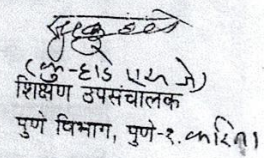 (कु-हाडे एस जे)
शिक्षण उपसंचालक
पुणे विभाग, पुणे-१. करिता